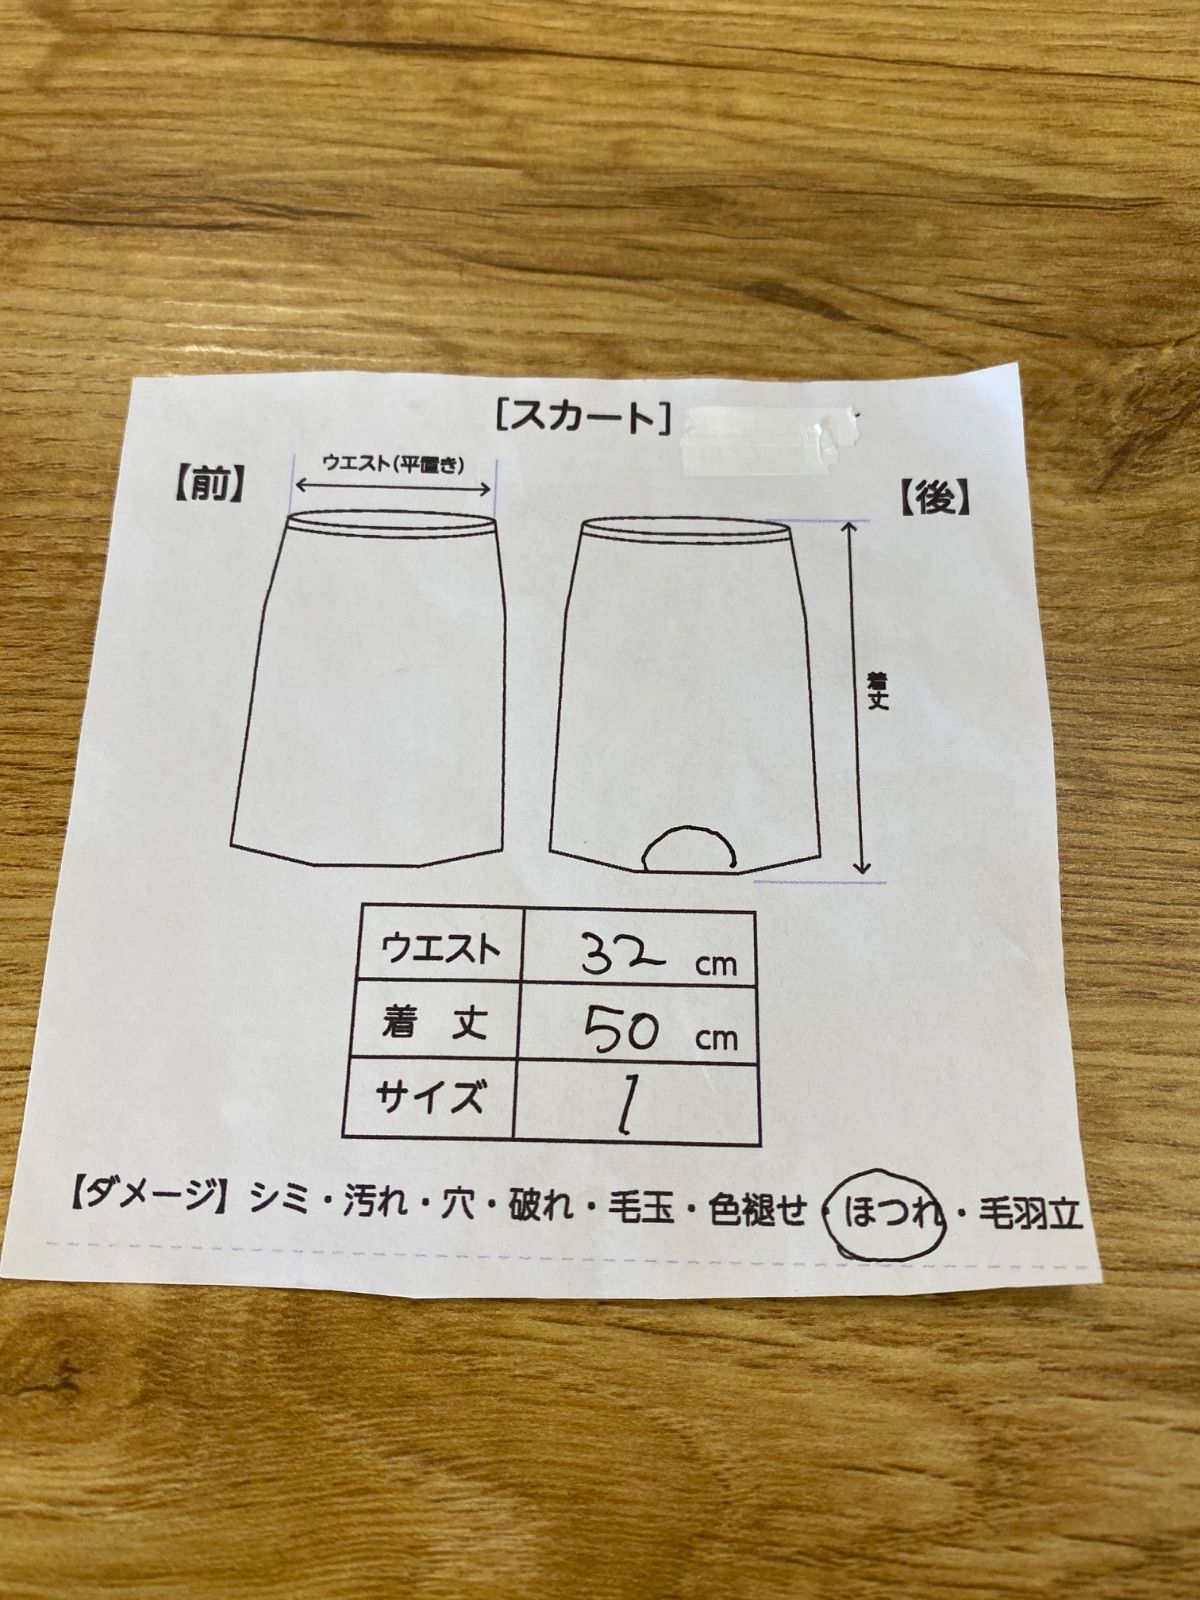 ［スカート］
【前】
ウエスト(平置き)
【後】
着丈
ウエスト 32 cm
着 丈 50 cm
サイズ 1
【ダメージ】シミ・汚れ・穴・破れ・毛玉・色褪せ・ほつれ・毛羽立